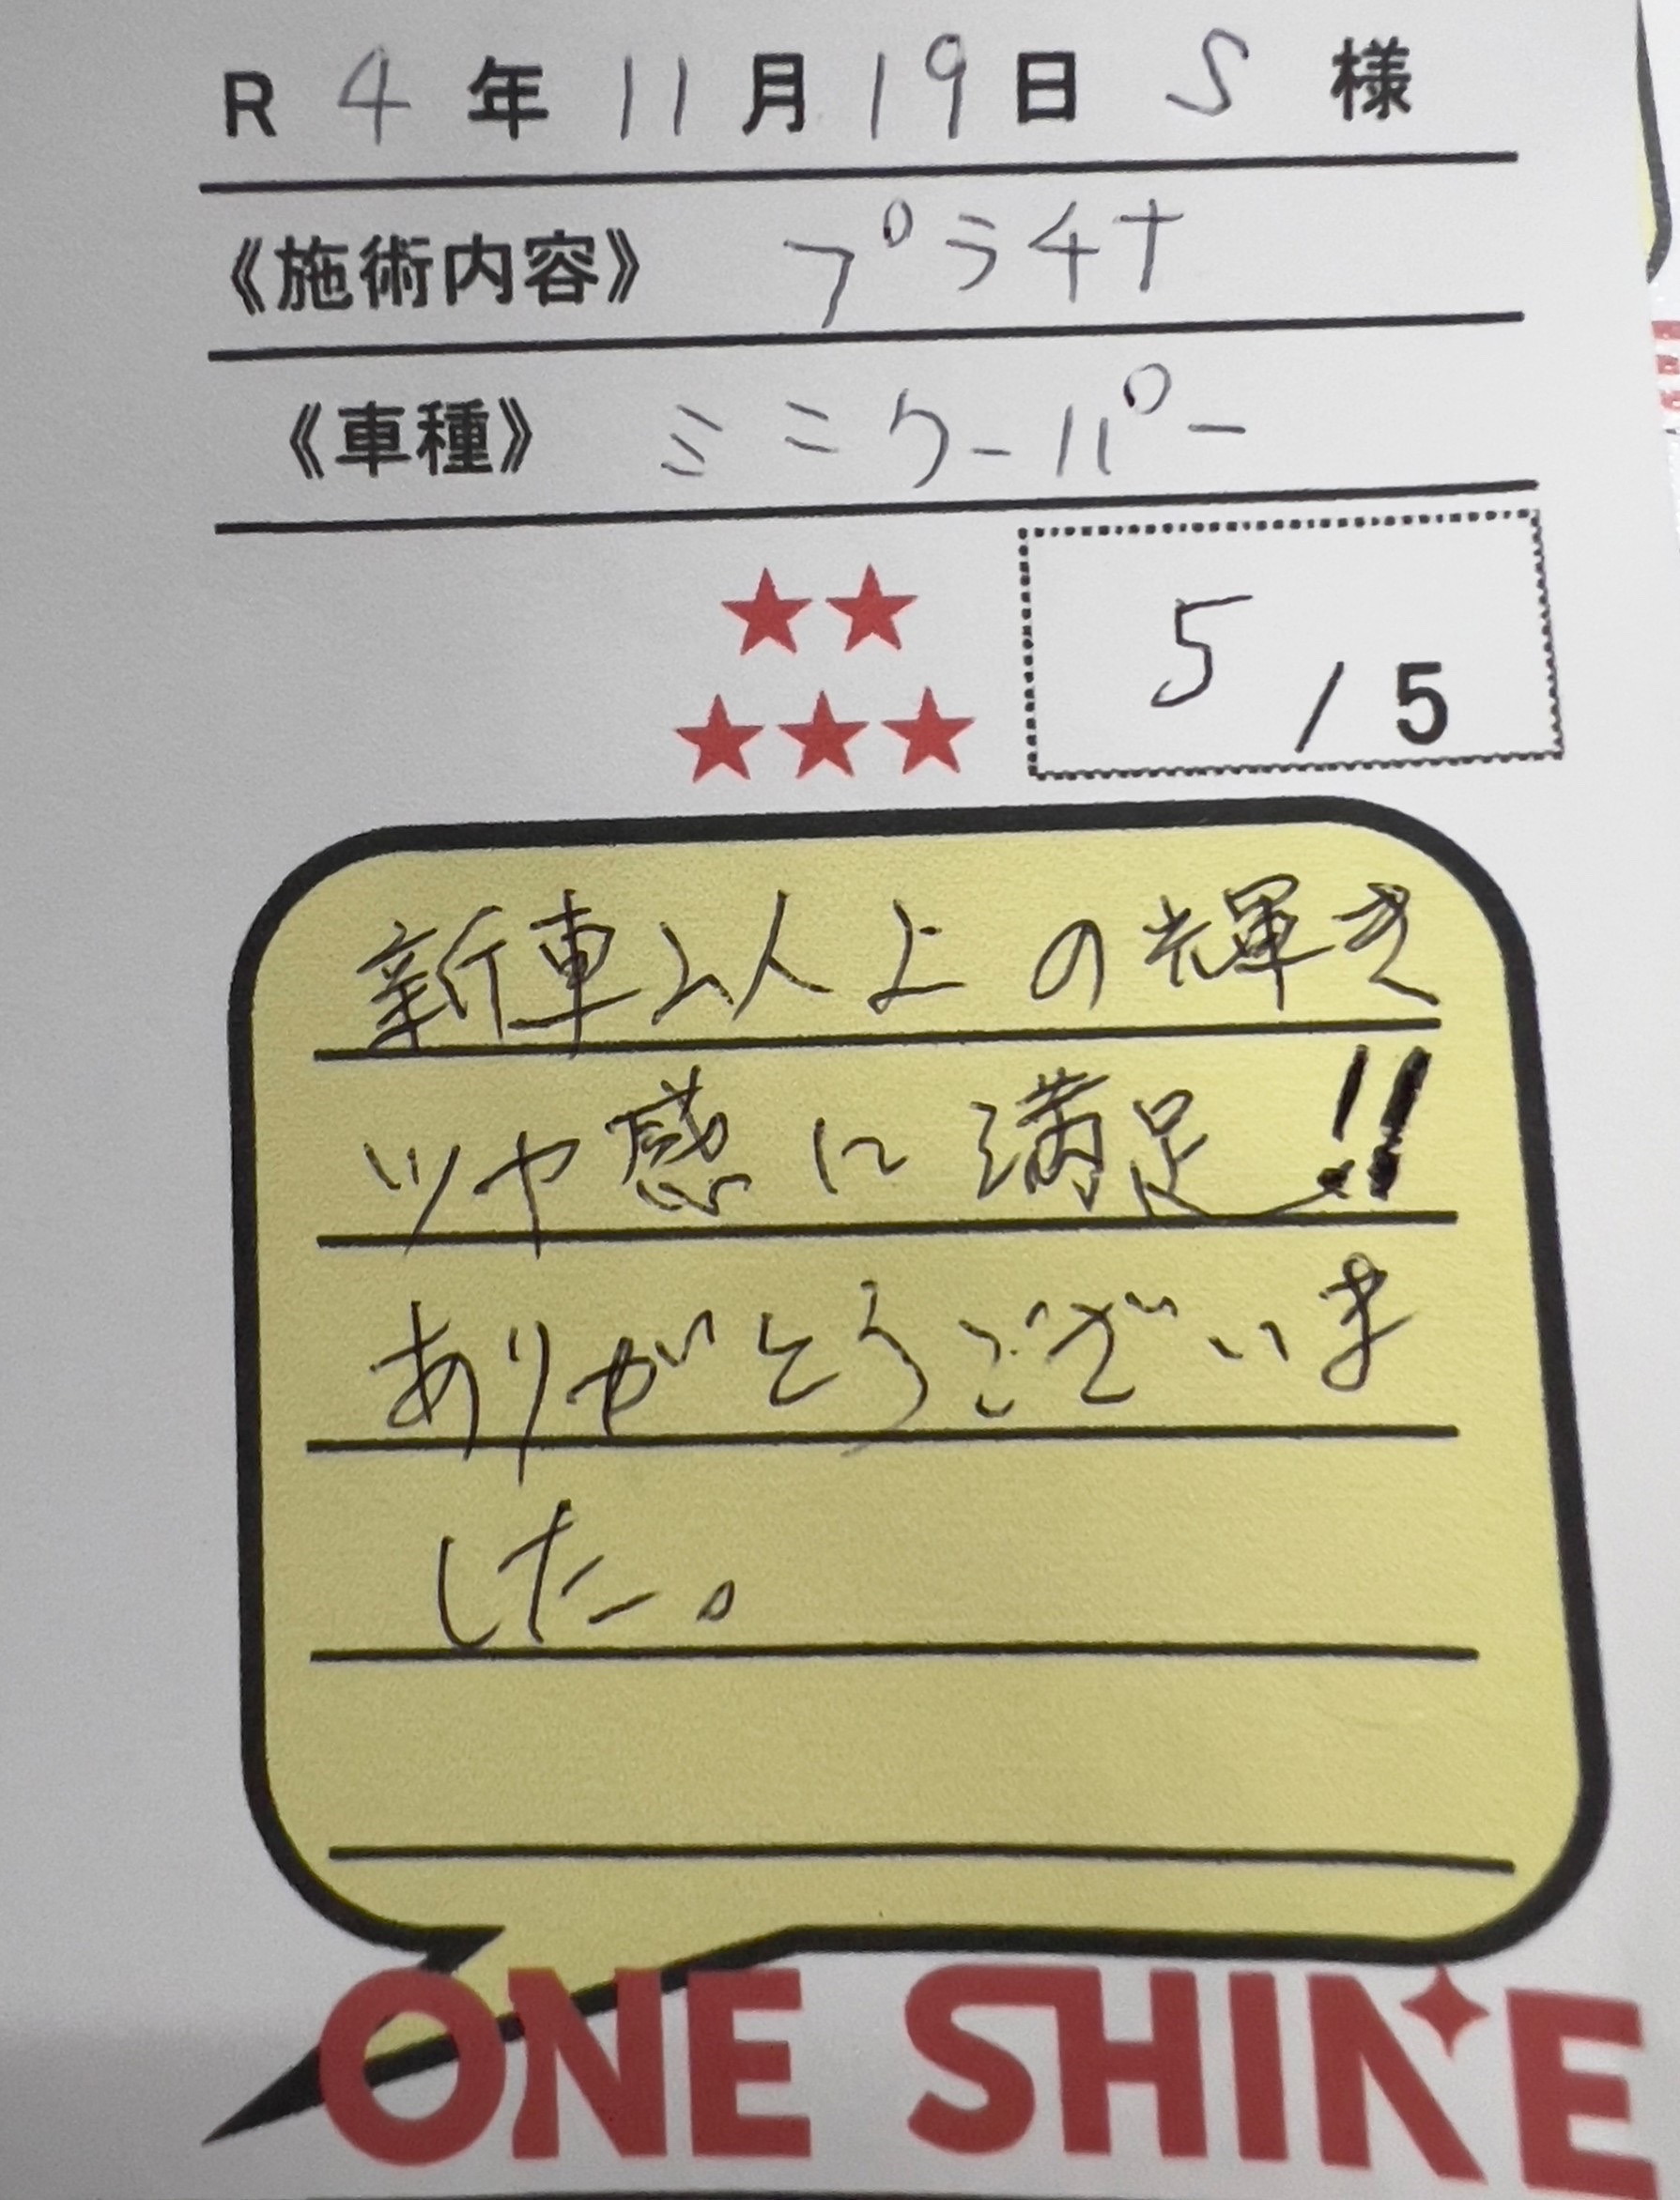 R 4 年 11 月 19 日 S 様
《施術内容》 プラチナ
《車種》 ミニクーパー
★★
★★★
5 / 5
新車以上の輝き
ツヤ感に満足!!
ありがとうございま
した。
ONE SHINE